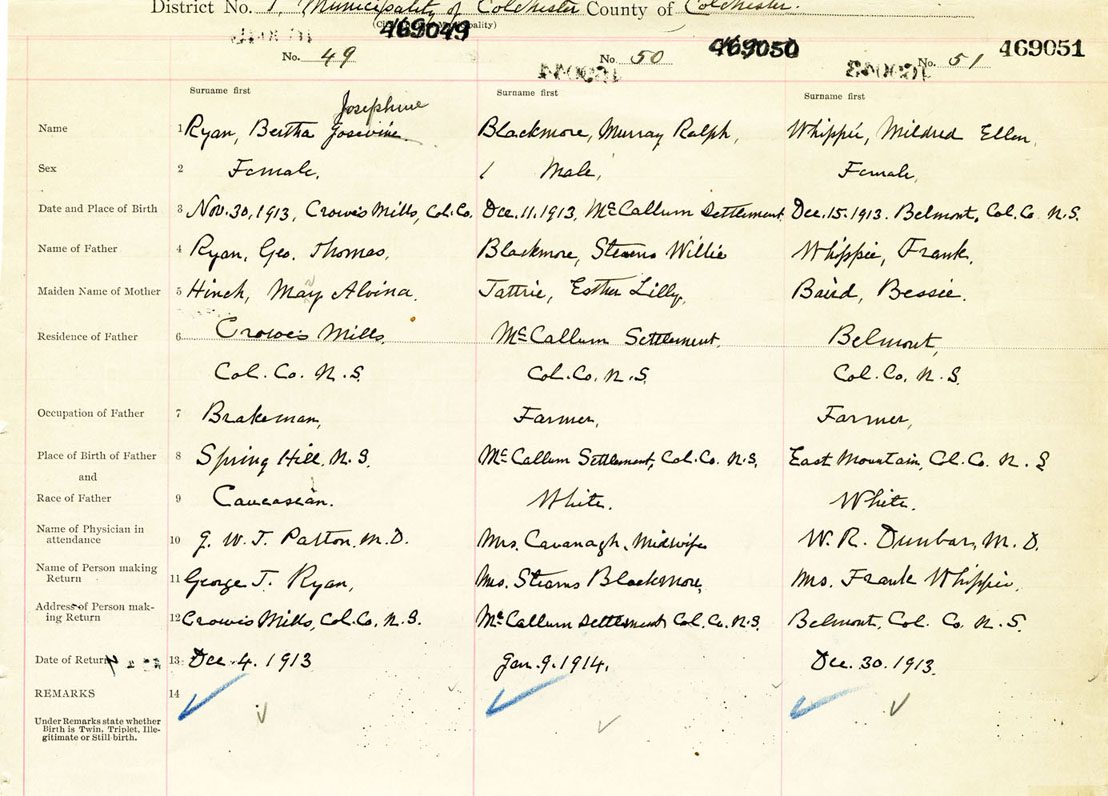 District No. 1, Municipality of Colchester County of Colchester.
(City Town or Municipality)
469049 469050 469051
No. 49 No. 50 No. 51
Surname first Surname first Surname first
Josephine
Name 1 Ryan, Bertha Josevine. Blackmore, Murray Ralph, Whippie, Mildred Ellen,
Sex 2 Female, Male, Female,
Date and Place of Birth 3 Nov. 30, 1913, Crowe's Mills, Col. Co. Dec. 11. 1913, McCallum Settlement. Dec. 15. 1913. Belmont, Col. Co. N.S.
Name of Father 4 Ryan, Geo. Thomas, Blackmore, Stearns Willie Whippie, Frank,
Maiden Name of Mother 5 Hinch, May Alvina, Tattrie, Esther Lilly, Baird, Bessie.
Residence of Father 6 Crowe's Mills, McCallum Settlement, Belmont,
Col. Co. N.S. Col. Co. N.S. Col. Co. N.S.
Occupation of Father 7 Brakeman, Farmer, Farmer,
Place of Birth of Father 8 Spring Hill, N.S. McCallum Settlement, Col. Co. N.S. East Mountain, Col. Co. N.S
and
Race of Father 9 Caucasian. White. White.
Name of Physician in
attendance 10 G. W. T. Patton, M.D. Mrs. Cavanagh, Midwife W. R. Dunbar, M.D.
Name of Person making
Return 11 George T. Ryan, Mrs. Stearns Blackmore, Mrs. Frank Whippie,
Address of Person mak-
ing Return 12 Crowe's Mills, Col. Co. N.S. McCallum Settlement Col. Co. N.S. Belmont, Col. Co. N.S.
Date of Return 13 Dec. 4. 1913 Jan. 9. 1914. Dec. 30. 1913.
REMARKS 14
Under Remarks state whether
Birth is Twin, Triplet, Ille-
gitimate or Still-birth.